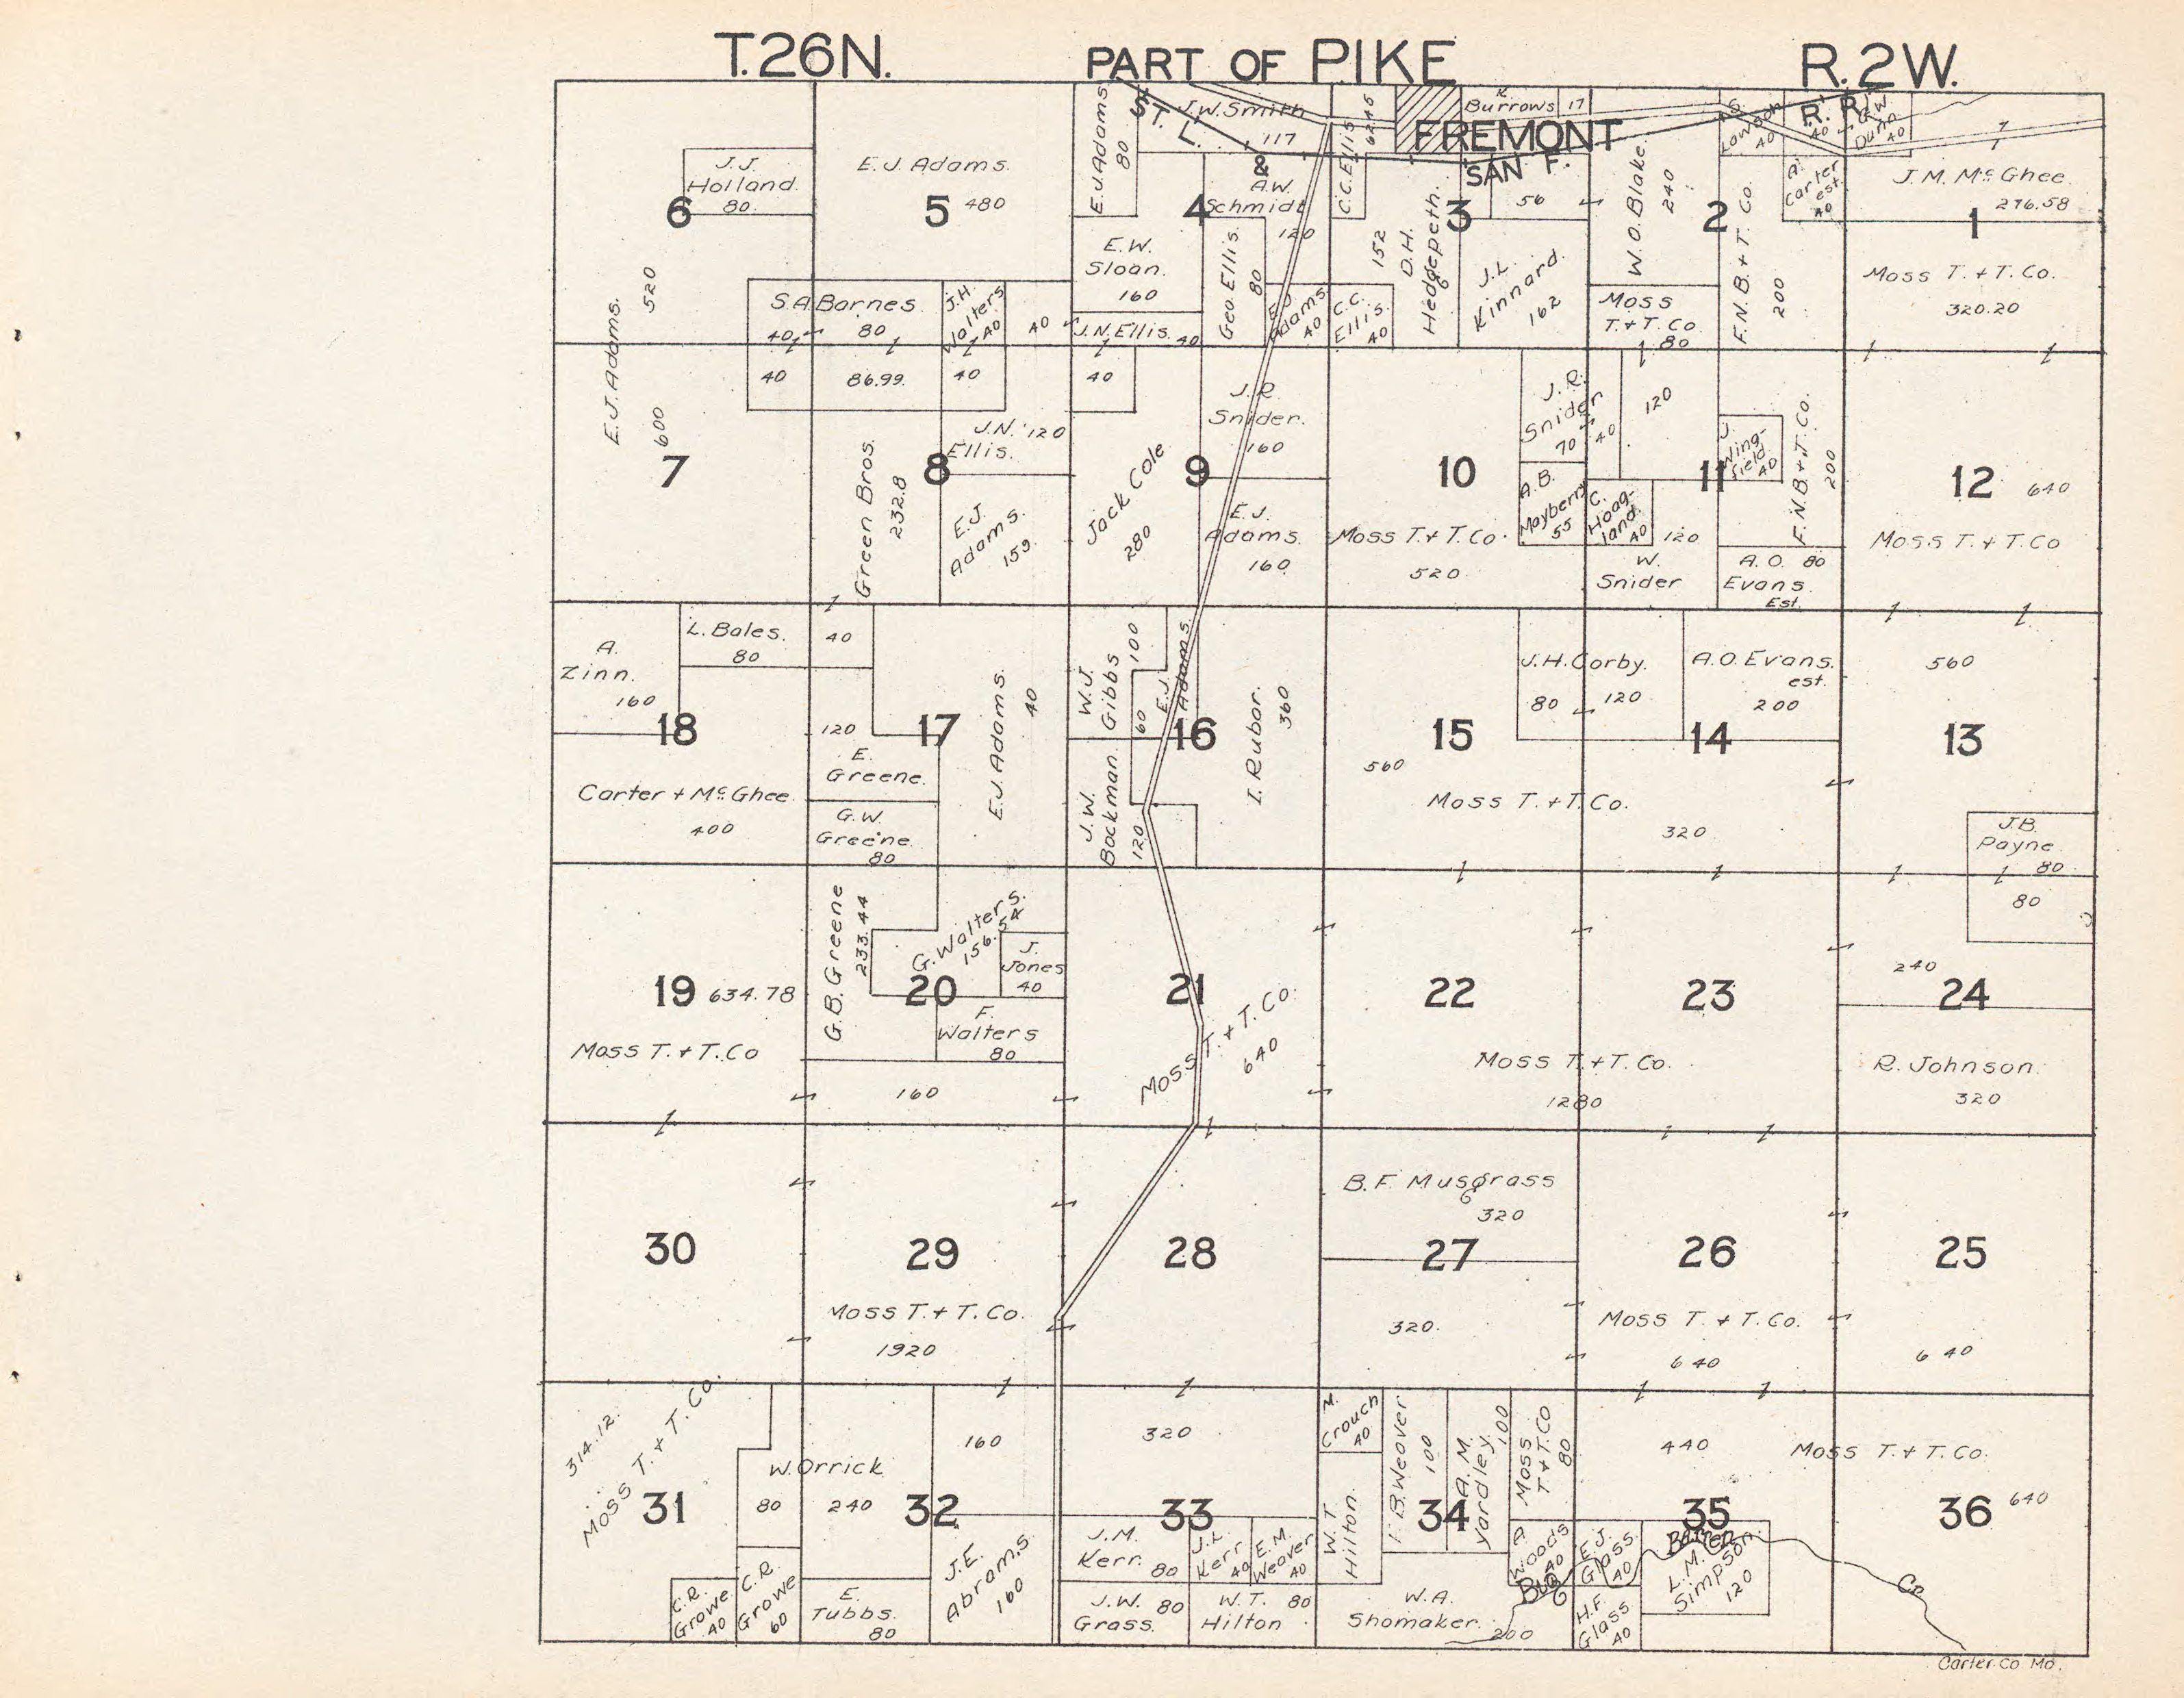 T.26N. PART OF PIKE R.2W.
J.J.
Holland.
80.
6
520
E.J. Adams.
E.J. Adams.
5 480
S.A. Barnes
40
80
J.H.
Walters
40
40
E.J. Adams
80
ST. L. & SAN F. R. R.
J.W. Smith
117
4
A.W.
Schmidt
120
E.W.
Sloan.
160
J.N. Ellis. 40
Geo. Ellis.
80
E.J.
Adams
40
C.C. Ellis
62.45
FREMONT
K.
Burrows 17
3
56
152
D.H.
Hedgepeth.
C.C.
Ellis.
40
J.L.
Kinnard.
162
W.O. Blake.
240
2
Moss
T. + T. Co.
80
Lawson
40
40
G.W.
Dunn
40
A.
Carter
est.
40
F.N.B. + T. Co.
200
J.M. McGhee.
276.58
1
Moss T. + T. Co.
320.20
7
600
40
86.99.
40
J.N. 120
Ellis.
8
Green Bros.
232.8
E.J.
Adams.
159
40
Jack Cole
280
9
J.R.
Snider.
160
E.J.
Adams.
160
10
Moss T. + T. Co.
520
J.R.
Snider
70
40
A.B.
Mayberry
55
120
11
J.
Wing-
field
40
C.
Hoag-
land.
40
120
W.
Snider
F.N.B. + T. Co.
200
A.O. 80
Evans.
Est.
12 640
Moss T. + T. Co
A.
Zinn.
160
L. Bales.
80
18
Carter + McGhee.
400
40
17
120
E.
Greene.
G.W.
Greene.
80
E.J. Adams.
40
W.J.
Gibbs
100
60
E.J.
Adams.
16
J.W.
Backman.
120
I. Rubar.
360
15
560
Moss T. + T. Co.
J.H. Corby.
80
120
A.O. Evans.
est.
200
14
320
560
13
J.B.
Payne
80
80
19 634.78
Moss T. + T. Co
G.B. Greene
233.44
G. Walters.
156.54
J.
Jones
40
20
F.
Walters
80
160
21
Moss T. + T. Co.
640
22
23
Moss T. + T. Co.
1280
240
24
R. Johnson.
320
30
29
Moss T. + T. Co.
1920
28
B.F. Musgrass
320
27
320.
26
Moss T. + T. Co.
640
25
640
314.12.
Moss T. + T. Co.
31
80
W. Orrick
240
32
160
C.R.
Growe.
40
C.R.
Growe
60
E.
Tubbs.
80
J.E.
Abrams
160
320
33
J.M.
Kerr. 80
J.L.
Kerr
40
E.M.
Weaver
40
J.W. 80
Grass.
W.T. 80
Hilton
M.
Crouch
40
W.T.
Hilton.
B. Weaver
100
34
A.M.
Yardley.
100
Moss
T + T. Co
80
A.
Woods
40
W.A.
Shomaker.
200
440
35
E.J.
Glass.
40
H.F.
Glass
40
L.M.
Simpson.
120
Big Barren Cr.
Moss T. + T. Co.
36 640
Carter Co Mo.